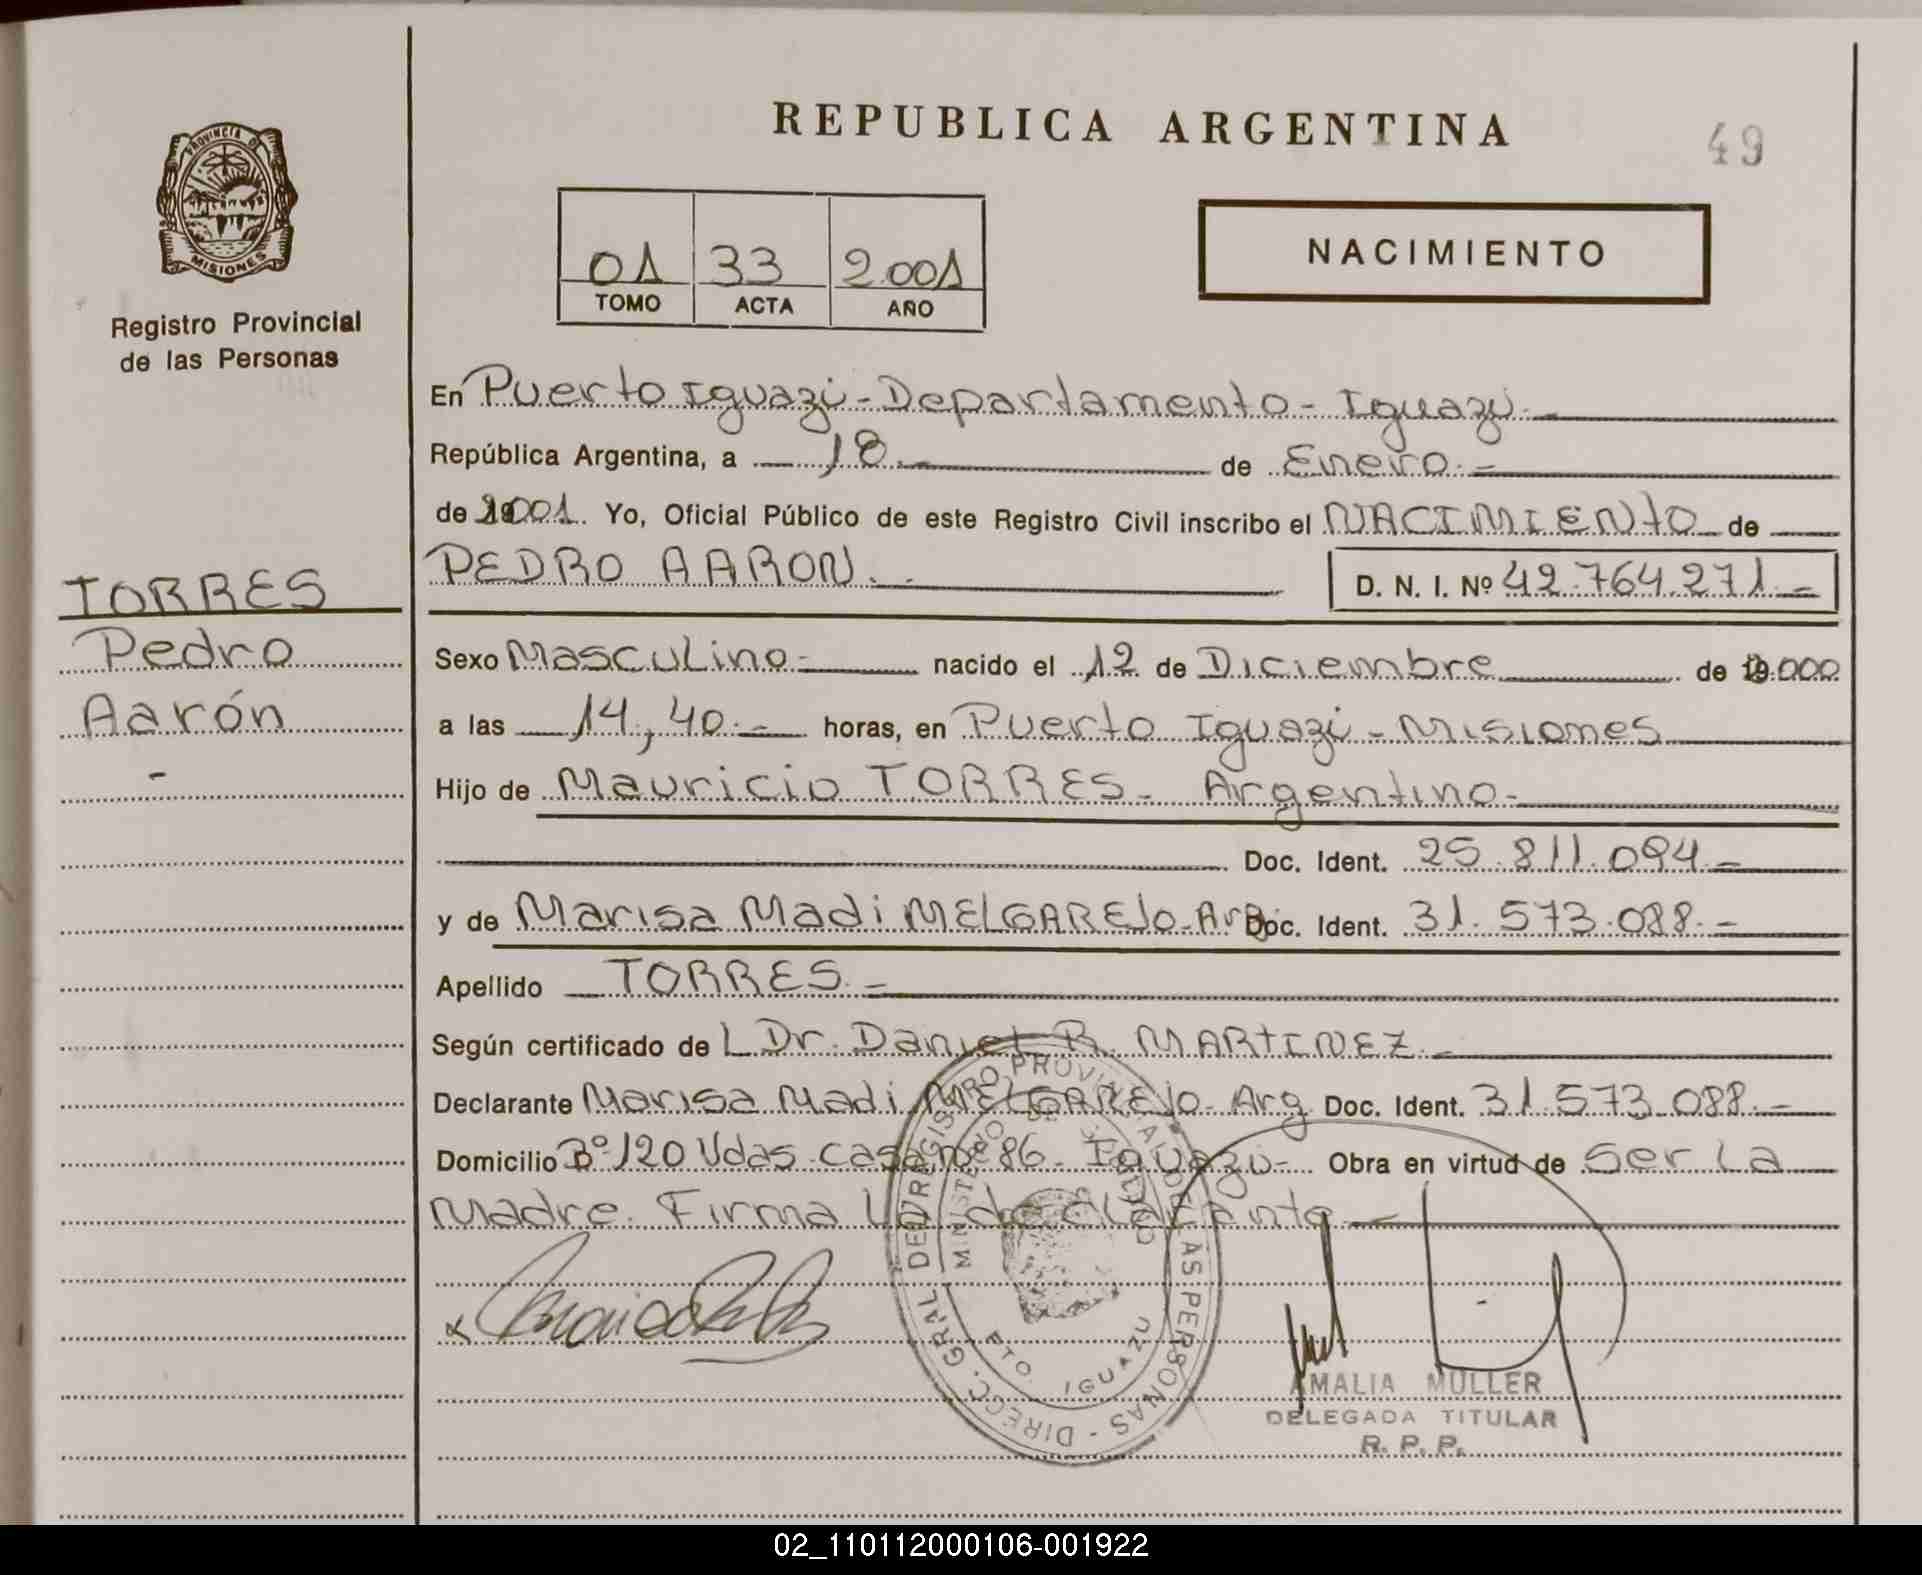 REPUBLICA ARGENTINA
49
PROVINCIA DE
MISIONES
Registro Provincial
de las Personas
01 33 2.001
TOMO ACTA AÑO
NACIMIENTO
En Puerto Iguazú - Departamento - Iguazú -
República Argentina, a 18 - de Enero -
de 2001 Yo, Oficial Público de este Registro Civil inscribo el NACIMIENTO de
PEDRO AARON. D. N. I. Nº 42.764.271.-
TORRES
Pedro
Aarón
-
Sexo Masculino - nacido el 12 de Diciembre de 2.000
a las 14,40.- horas, en Puerto Iguazú - Misiones
Hijo de Mauricio TORRES - Argentino -
Doc. Ident. 25.811.094.-
y de Marisa Madi MELGAREJO - Arg. Doc. Ident. 31.573.088.-
Apellido TORRES.-
Según certificado de L Dr. Daniel R. MARTINEZ.-
Declarante Marisa Madi MELGAREJO - Arg Doc. Ident. 31.573.088.-
Domicilio Bº 120 Vdas. casa nº 86 - Iguazú - Obra en virtud de Ser La
Madre. Firma La declarante.-
DIREC. GRAL. DEL REGISTRO PROVINCIAL DE LAS PERSONAS -
MINISTERIO DE
PTO. IGUAZU
AMALIA MULLER
DELEGADA TITULAR
R. P. P.
02_110112000106-001922